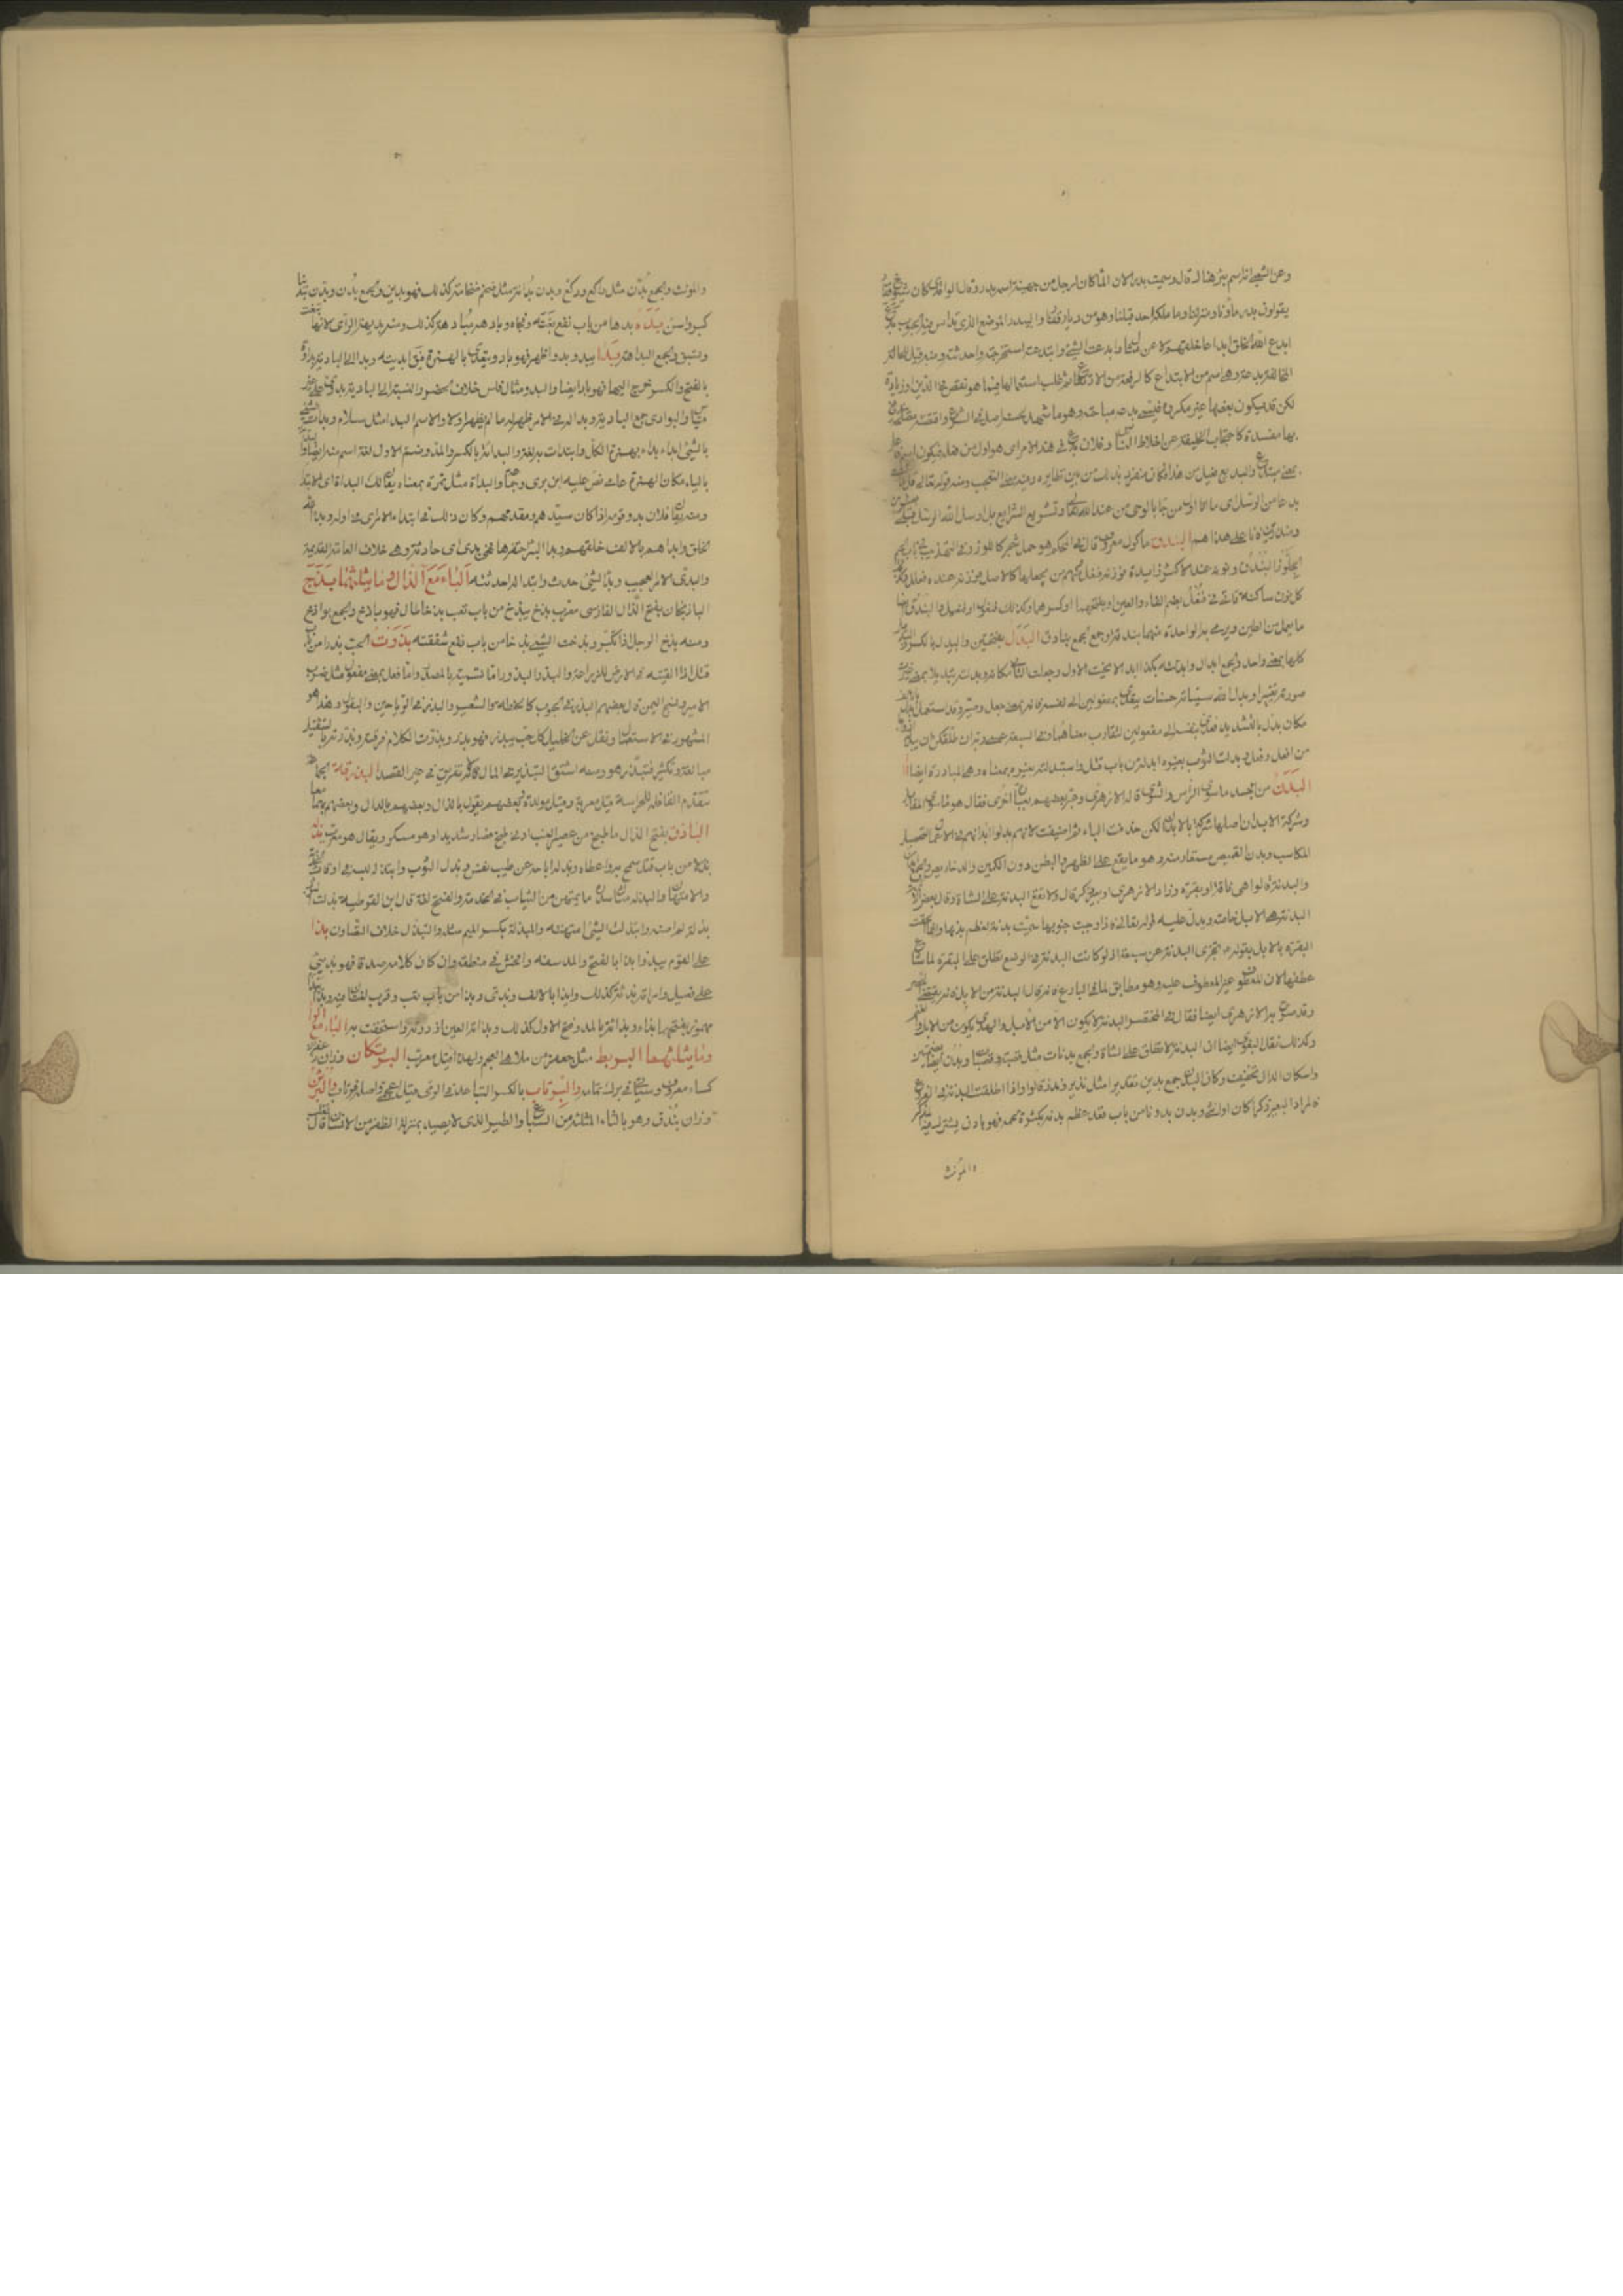 وعن الشعبي انه اسم بئر هناك قال وسميت بدر لان الماء كان لرجل من جهينة اسمه بدر وقال الواقدي كان شيوخ غفار
يقولون بدر ماؤنا ومنزلنا وما ملكه احد قبلنا وهو من ديار غفار والبيدر الموضع الذي تداس فيه الحبوب
ابدع الله الخلق ابداعا خلقهم لا عن مثال وابدعت الشئ وابتدعته استخرجته واحدثته ومنه قيل للحالة
المخالفة بدعة وهي اسم من الابتداع كالرفعة من الارتفاع ثم غلب استعمالها فيما هو نقص في الدين او زيادة
لكن قد يكون بعضها غير مكروه فيسمى بدعة مباحة وهو ما شهد لجنسه اصل في الشرع او اقتضته مصلحة
بها مفسدة كاحتجاب الخليفة عن اخلاط الناس وفلان بدع في هذا الامر اي هو اول من فعله فيكون اسم فاعل
بمعنى مبتدع والبديع فعيل من هذا فكان معناه هو منفرد بذلك من بين نظائره وفيه معنى التعجب ومنه قوله تعالى قل ما كنت
بدعا من الرسل اي ما انا اول من جاء بالوحي من عند الله تعالى وتشريع الشرايع بل ارسل الله الرسل قبلي
ومنذرين فانا على هداهم البندق ماكول معروف قال في المحكم هو حمل شجر كالجلوز وفي التهذيب في باب الجيم
الجلوز البندق ونونه عند الاكثر زايدة فوزنه فنعل ومنهم من يجعلها كالاصل فوزنه عنده فعلل
كل نون ساكنة تاتي في فنعل بضم الفاء والعين او بفتحهما او كسرهما وكذلك فنعول او فنعيل والبندق ايضا
ما يعمل من الطين ويرمى به الواحدة منهما بندقة وجمع الجمع بنادق البدل بفتحتين والبدل بالكسر والبديل
كلها بمعنى واحد والجمع ابدال وابدلته بكذا ابدالا نحيت الاول وجعلت الثاني مكانه وبدلته تبديلا بمعنى غيرت
صورته تغييرا وبدل الله سيئاته حسنات يتعدى الى مفعولين الى نفسه لانه بمعنى جعل وصير وقد استعمل ابدل
مكان بدل بالتشديد فعدي بنفسه الى مفعولين لتقارب معناهما وفي السبعة عسى ربه ان طلقكن ان يبدله
من افعل وفعل وبدلت الثوب بغيره ابدله من باب قتل واستبدلته بغيره بمعناه وهي المبادلة ايضا
البدن من الجسد ما سوى الراس والشوى قاله الازهري وعبر بعضهم بعبارة اخرى فقال هو ما سوى المقاتل
وشركة الابدان اصلها شركة بالابدان لكن حذفت الباء ثم اضيفت لانهم بذلوا ابدانهم في الاعمال لتحصيل
المكاسب وبدن القميص مستعار منه وهو ما يقع على الظهر والبطن دون الكمين والدخاريص والجمع ابدان
والبدنة قالوا هي ناقة او بقرة وزاد الازهري او بعير ذكر قال ولا تقع البدنة على الشاة وقال بعض الائمة
البدنة هي الابل خاصة ويدل عليه قوله تعالى فاذا وجبت جنوبها سميت بدنة لعظم بدنها وانما الحقت
البقرة بالابل بقوله م تجزي البدنة عن سبعة اذ لو كانت البدنة في الوضع تطلق على البقرة لما ساغ
عطفها لان المعطوف غير المعطوف عليه وهو مطابق لما في البارع فانه قال البدنة من الابل فانه يقتضي
وقد سوى بها الازهري ايضا فقال في المختصر البدنة لا يكون الا من الابل والهدي يكون من الابل والبقر والغنم
وكذلك نقل البغوي ايضا ان البدنة لا تطلق على الشاة والجمع بدنات مثل قصبة وقصبات وبدن ايضا بضمتين
واسكان الدال تخفيف وكان البدن جمع بدين تقديرا مثل نذير ونذر قالوا واذا اطلقت البدنة في الفروع
فالمراد البعير ذكرا كان او انثى وبدن بدونا من باب قعد عظم بدنه بكثرة لحمه فهو بادن يشترك فيه المذكر
والمؤنث
والمؤنث والجمع بدن مثل راكع وركع وبدن بدانة مثل ضخم ضخامة كذلك فهو بدين والجمع بدن وبدن تبدينا
كبر واسن بدهه بدها من باب نفع بغته وفجاه وبادهه مبادهة كذلك ومنه بديهة الراي لانها تبغت
وتسبق والجمع البدائه بدا يبدو بدوا ظهر فهو باد ويتعدى بالهمزة فيق ابديته وبدا الى البادية بداوة
بالفتح والكسر خرج اليها فهو باد ايضا والبدو مثال فلس خلاف الحضر والنسبة الى البادية بدوي على غير
قياس والبوادي جمع البادية وبدا له في الامر ظهر له ما لم يظهر اولا والاسم البداء مثل سلام وبدات الشئ
بالشئ ابدا بدا بهمزة الكل وابتدات به لغة والبداءة بالكسر والمد وضم الاول لغة اسم منه ايضا
بالياء مكان الهمزة عامي نص عليه ابن بري وجماعة والبداة مثل تمرة بمعناه يقال لك البداة اي الابتداء
ومنه يقال فلان بدو قومه اذا كان سيدهم ومقدمهم وكان ذلك في ابتداء الامر اي في اوله وبدا الله
الخلق وابداهم بالالف خلقهم وبدا البئر احتفرها فهي بدي اي حادثة وهي خلاف العادية القديمة
والبدي الامر العجيب وبدا الشئ حدث وابتداته احدثته الباء مع الذال وما يثلثهما بذج
الباذنجان بفتح الذال الفارسي معرب بذخ يبذخ من باب تعب بذخا طال فهو باذخ والجمع بواذخ
ومنه بذخ الرجل اذا تكبر وبذخت الشئ بذخا من باب نفع شققته بذرت الحب بذرا من باب
قتل اذا القيته في الارض للزراعة والبذر المبذور اما تسمية بالمصدر واما فعل بمعنى مفعول مثل ضرب
الامير ونسج اليمن قال بعضهم البذر في الحبوب كالحنطة والشعير والبذر في الرياحين والبقول وهذا هو
المشهور في الاستعمال ونقل عن الخليل كل حب يبذر فهو بذر وبذرت الكلام فرقته وبذرته بالتثقيل
مبالغة وتكثير فتبذر هو ومنه اشتق التبذير في المال لانه تفريق في غير القصد البذرقة الجماعة
تتقدم القافلة للحراسة قيل معربة وقيل مولدة وبعضهم يقول بالذال وبعضهم بالدال وبعضهم بهما
الباذق بفتح الذال ما طبخ من عصير العنب ادنى طبخ فصار شديدا وهو مسكر ويقال هو معرب بذله
بذلا من باب قتل سمح به واعطاه وبذله اباحه عن طيب نفس وبذل الثوب وابتذله لبسه في اوقات الخدمة
والامتهان والبذلة مثال سدرة ما يمتهن من الثياب في الخدمة والفتح لغة قال ابن القوطية بذلت الثوب
بذلة لم اصنه وابتذلت الشئ امتهنته والمبذلة بكسر الميم مثله والتبذل خلاف التصاون بذا
على القوم يبذوا بذاء بالفتح والمد سفه وافحش في منطقه وان كان كلامه صدقا فهو بذي
على فعيل وامراة بذية كذلك وابذا بالالف وبذي وبذا من باب تعب وقرب لغات فيه وبذا
مهموز بفتحهما بذاء وبذاءة بالمد وفتح الاول كذلك وبذاته العين ازدرته واستخفت به الباء مع الراء
وما يثلثهما البربط مثل جعفر من ملاهي العجم ولهذا قيل معرب البرتكان وزان زعفران
كساء معروف وسياتي في برك تمامه والبرتاب بالكسر التباعد في الرمي قيل عجمي واصله فرتاب والبرثن
وزان بندق وهو بالثاء المثلثة من السباع والطير الذي لا يصيد بمنزلة الظفر من الانسان قال ثعلب